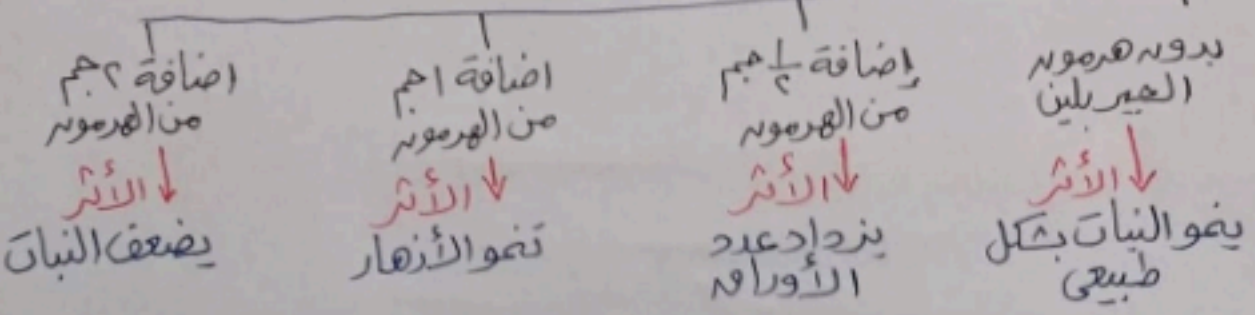 بدون هرمون
الجبريلين
الأثر
ينمو النبات بشكل
طبيعى
إضافة ½ جم
من الهرمون
الأثر
يزداد عدد
الأوراق
اضافة ١ جم
من الهرمون
الأثر
تنمو الأزهار
اضافة ٢ جم
من الهرمون
الأثر
يضعف النبات